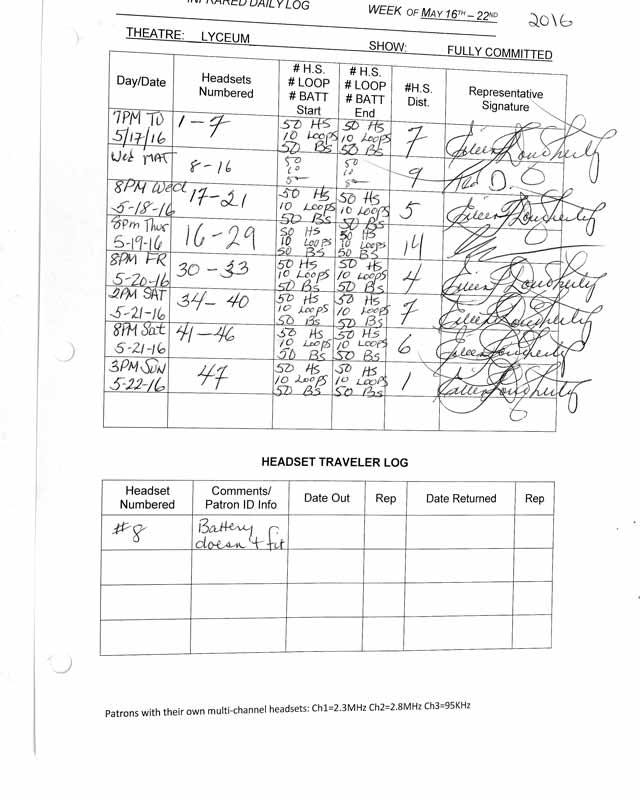 INFRARED DAILY LOG
WEEK OF MAY 16TH – 22ND 2016
THEATRE: LYCEUM SHOW: FULLY COMMITTED
Day/Date Headsets Numbered # H.S. # LOOP # BATT Start # H.S. # LOOP # BATT End #H.S. Dist. Representative Signature
7PM TU 5/17/16 1-7 50 HS 10 Loops 50 BS 50 HS 10 Loops 50 BS 7 Eileen Dougherty
Wed MAT 8-16 50 10 50 10 9
8PM Wed 5-18-16 17-21 50 HS 10 Loops 50 BS 50 HS 10 Loops 50 BS 5 Eileen Dougherty
8pm Thur 5-19-16 16-29 50 HS 10 Loops 50 BS 50 HS 10 Loops 50 BS 14
8PM FR 5-20-16 30-33 50 HS 10 Loops 50 BS 50 HS 10 Loops 50 BS 4 Eileen Dougherty
2PM SAT 5-21-16 34-40 50 HS 10 Loops 50 BS 50 HS 10 Loops 50 BS 7 Eileen Dougherty
8PM Sat 5-21-16 41-46 50 HS 10 Loops 50 BS 50 HS 10 Loops 50 BS 6 Eileen Dougherty
3PM SUN 5-22-16 47 50 HS 10 Loops 50 BS 50 HS 10 Loops 50 BS 1 Eileen Dougherty
HEADSET TRAVELER LOG
Headset Numbered Comments/ Patron ID Info Date Out Rep Date Returned Rep
#8 Battery doesn't fit
Patrons with their own multi-channel headsets: Ch1=2.3MHz Ch2=2.8MHz Ch3=95KHz